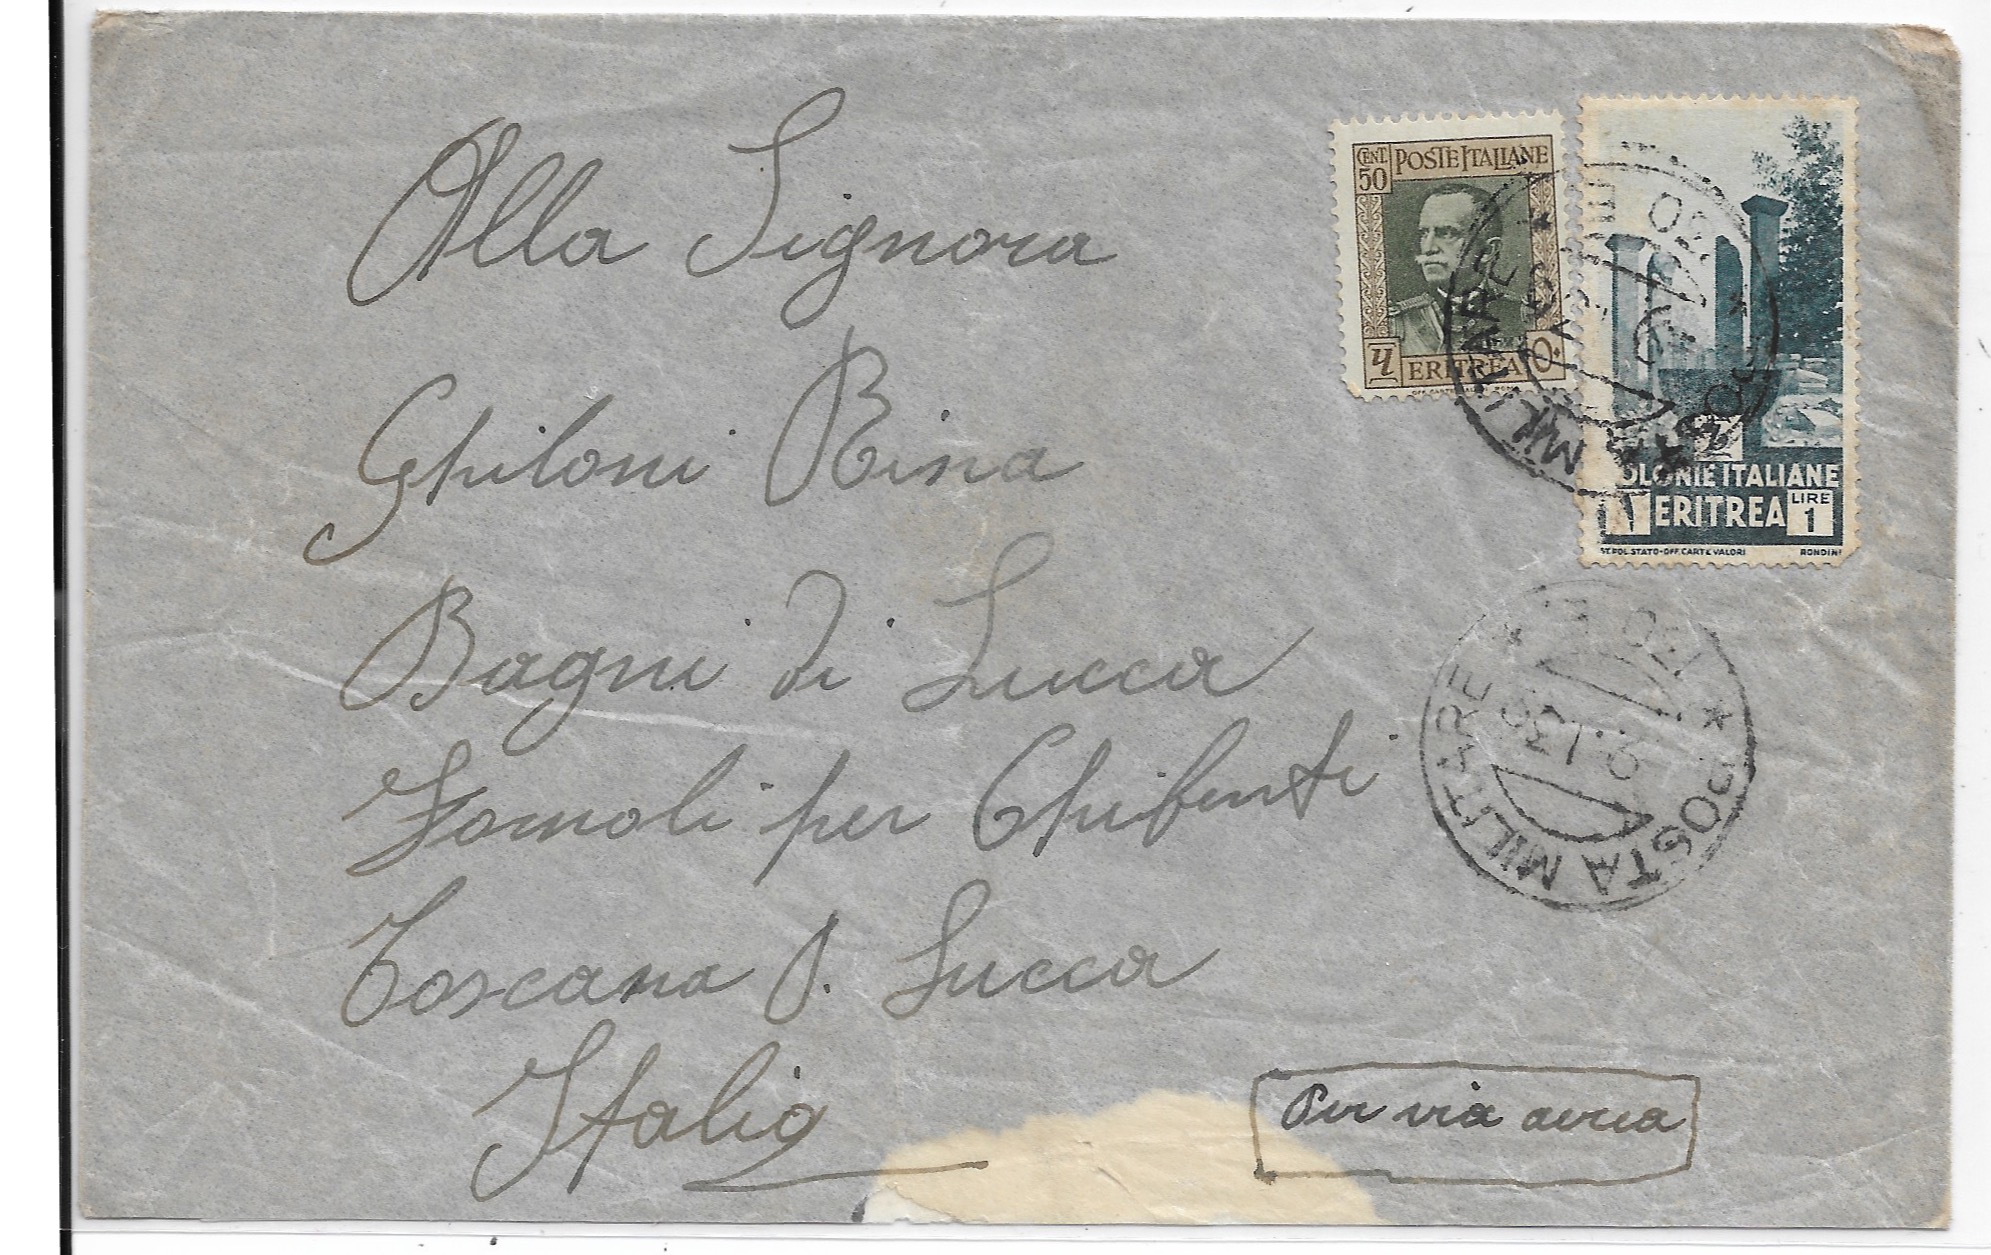 Alla Signora
Ghiloni Rina
Bagni di Lucca
Fornoli per Chifenti
Toscana P. Lucca
Italia
Per via aerea
CENT. 50
POSTE ITALIANE
ERITREA
COLONIE ITALIANE
ERITREA LIRE 1
IST. POL. STATO-OFF. CARTE VALORI RONDINI
POSTA MILITARE
POSTA MILITARE